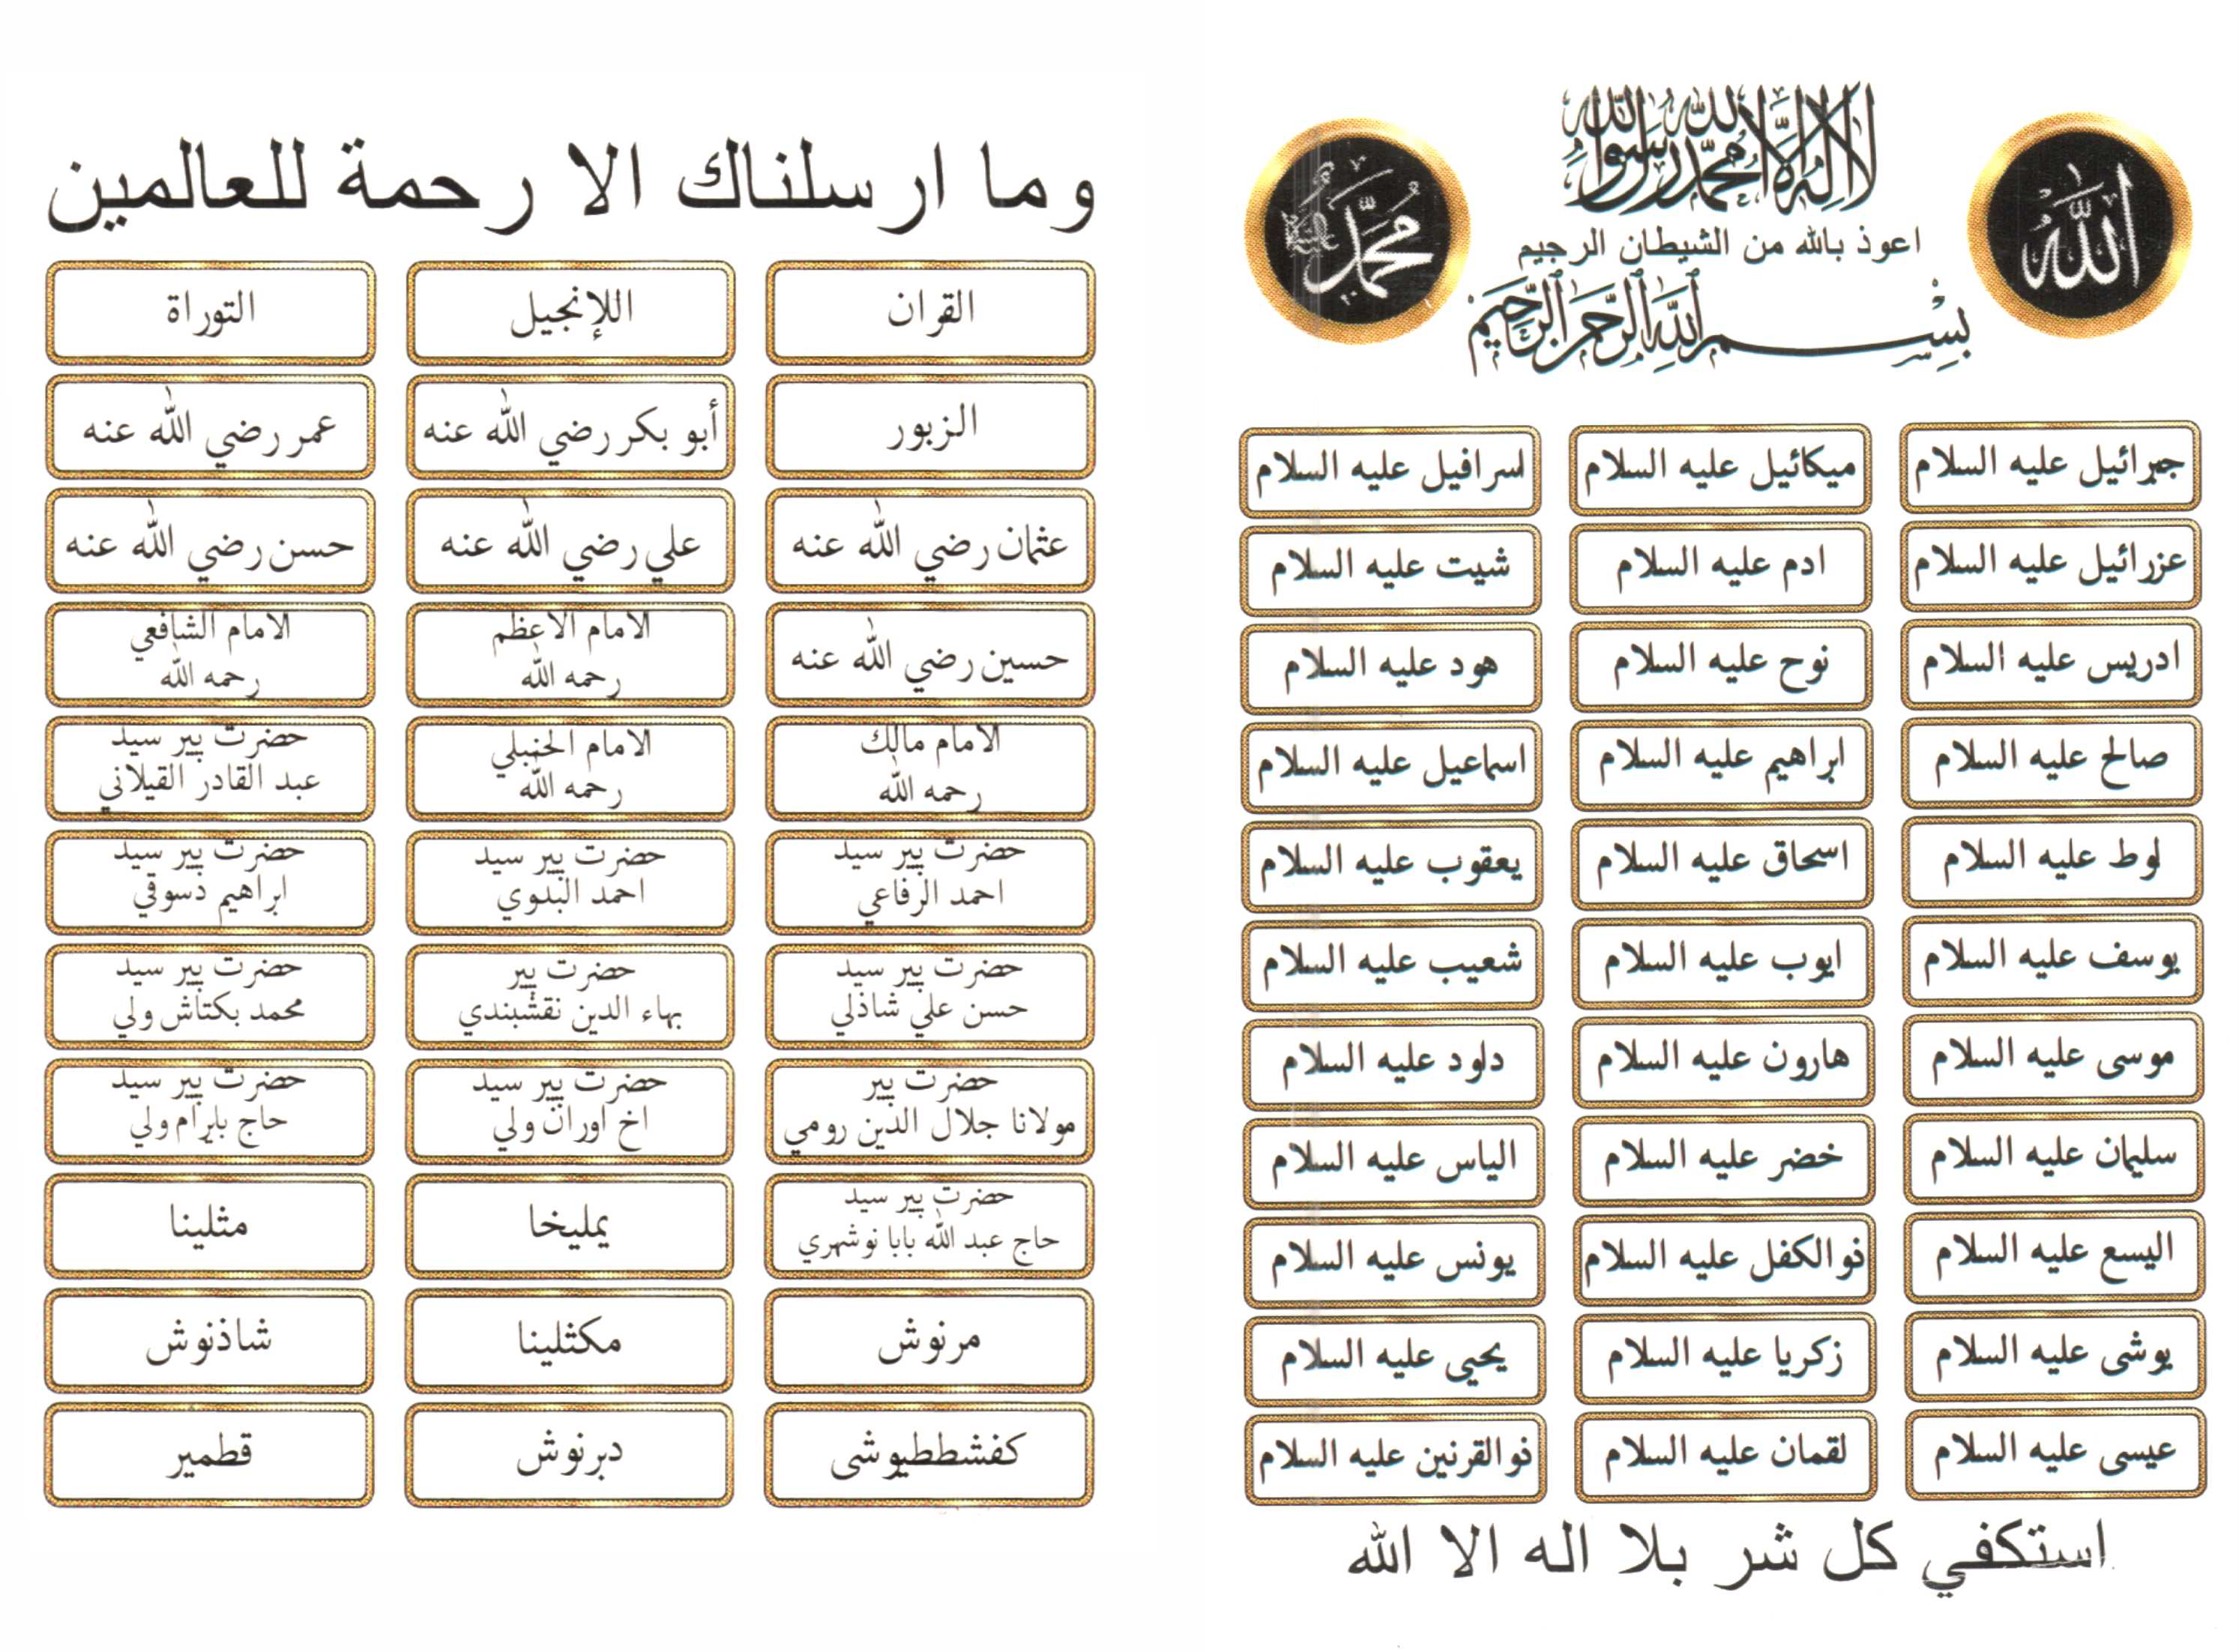 الله
لا اله الا الله محمد رسول الله
محمد
اعوذ بالله من الشيطان الرجيم
بسم الله الرحمن الرحيم
جبرائيل عليه السلام
ميكائيل عليه السلام
اسرافيل عليه السلام
عزرائيل عليه السلام
ادم عليه السلام
شيت عليه السلام
ادريس عليه السلام
نوح عليه السلام
هود عليه السلام
صالح عليه السلام
ابراهيم عليه السلام
اسماعيل عليه السلام
لوط عليه السلام
اسحاق عليه السلام
يعقوب عليه السلام
يوسف عليه السلام
ايوب عليه السلام
شعيب عليه السلام
موسى عليه السلام
هارون عليه السلام
داود عليه السلام
سليمان عليه السلام
خضر عليه السلام
الياس عليه السلام
اليسع عليه السلام
ذوالكفل عليه السلام
يونس عليه السلام
يوشى عليه السلام
زكريا عليه السلام
يحيى عليه السلام
عيسى عليه السلام
لقمان عليه السلام
ذوالقرنين عليه السلام
استكفي كل شر بلا اله الا الله
وما ارسلناك الا رحمة للعالمين
القران
اللإنجيل
التوراة
الزبور
أبو بكر رضي الله عنه
عمر رضي الله عنه
عثمان رضي الله عنه
علي رضي الله عنه
حسن رضي الله عنه
حسين رضي الله عنه
الامام الاعظم
رحمه الله
الامام الشافعي
رحمه الله
الامام مالك
رحمه الله
الامام الحنبلي
رحمه الله
حضرت پير سيد
عبد القادر القيلاني
حضرت پير سيد
احمد الرفاعي
حضرت پير سيد
احمد البدوي
حضرت پير سيد
ابراهيم دسوقي
حضرت پير سيد
حسن علي شاذلي
حضرت پير
بهاء الدين نقشبندي
حضرت پير سيد
محمد بكتاش ولي
حضرت پير
مولانا جلال الدين رومي
حضرت پير سيد
اخ اوران ولي
حضرت پير سيد
حاج بايرام ولي
حضرت پير سيد
حاج عبد الله بابا نوشهري
يمليخا
مثلينا
مرنوش
مكثلينا
شاذنوش
كفشططيوشى
دبرنوش
قطمير